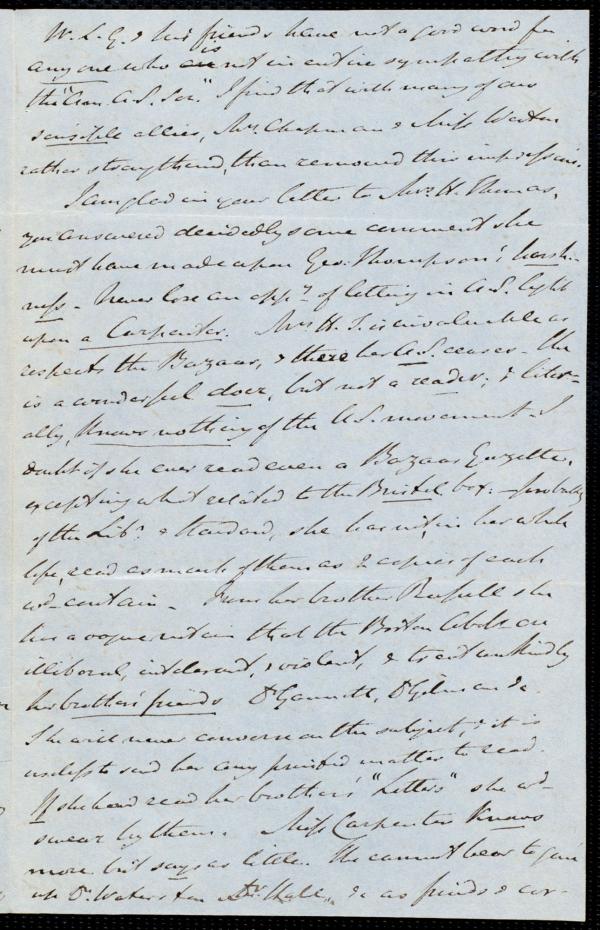 W. L. G. & his friends have not a good word for
any one who is not in entire sympathy with
the "Am. A.S. Soc." I find that with many of our
sensible allies, Mrs. Chapman & Miss Weston
rather strengthened, than removed this impression.
I am glad in your letter to Mrs. H. Thomas,
you answered decidedly some comment she
must have made upon Geo. Thompson's harsh-
ness. Never lose an oppy. of letting in A.S. light
upon a Carpenter. Mrs H. T. is invaluable as
respects the Bazaar, & there her A.S. ceases. She
is a wonderful doer, but not a reader; & liter-
ally, knows nothing of the A.S. movement. I
doubt if she ever read even a Bazaar Gazette,
excepting what related to the Bristol box. probably
of the Libr. & Standard, she has not, in her whole
life, read as much of them as 2 copies of each
wd. contain. From her brother Russell she
has a vague notion that the Boston Abols. are
illiberal, intolerant, & violent, & treat unkindly
her brothers' friends Dr Gannett, Dr Gilman &c.
She will never converse on the subject, & it is
useless to send her any printed matter to read.
If she had read her brothers' "Letters" she wd.
swear by them. Miss Carpenter knows
more but says as little. She cannot bear to give
up Dr. Waterston Dr. Hall, &c as friends & cor-